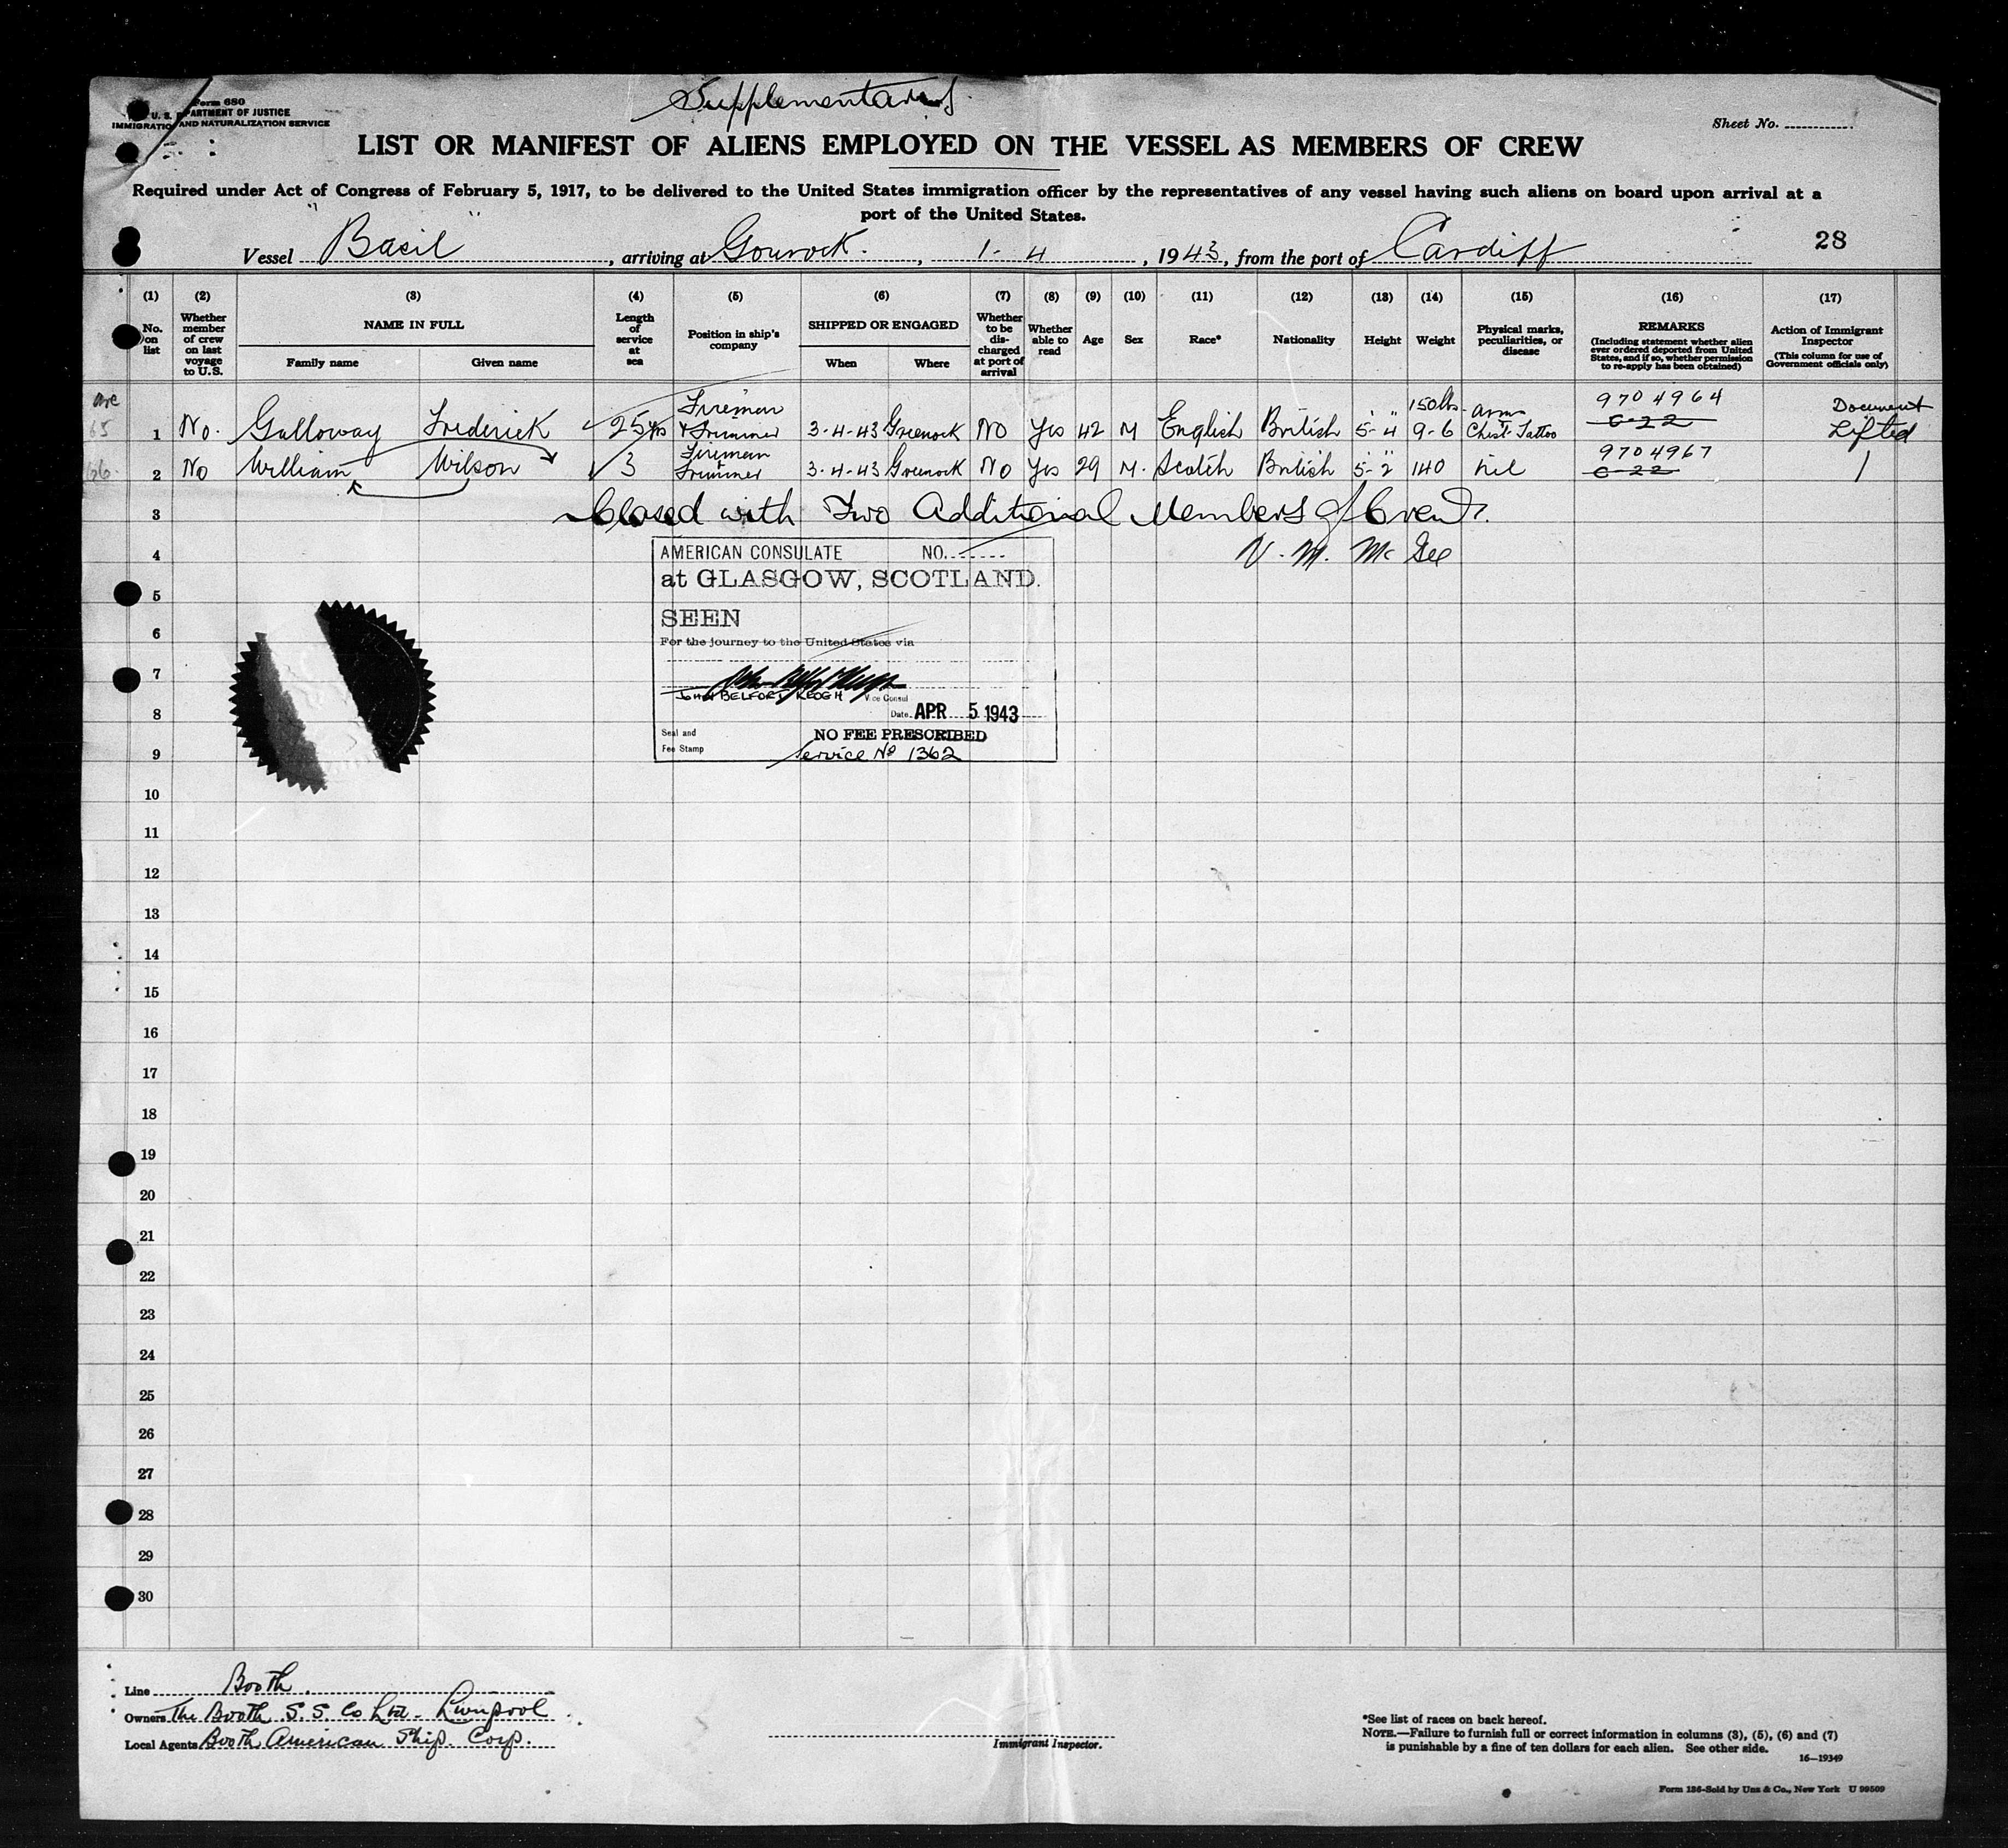 Supplementary
Form 680
U. S. DEPARTMENT OF JUSTICE
IMMIGRATION AND NATURALIZATION SERVICE
Sheet No.
LIST OR MANIFEST OF ALIENS EMPLOYED ON THE VESSEL AS MEMBERS OF CREW
Required under Act of Congress of February 5, 1917, to be delivered to the United States immigration officer by the representatives of any vessel having such aliens on board upon arrival at a
port of the United States.
Vessel "Basil", arriving at Gourock., 1-4, 1943, from the port of Cardiff
28
(1) No. on list
(2) Whether member of crew on last voyage to U.S.
(3) NAME IN FULL Family name Given name
(4) Length of service at sea
(5) Position in ship's company
(6) SHIPPED OR ENGAGED When Where
(7) Whether to be discharged at port of arrival
(8) Whether able to read
(9) Age
(10) Sex
(11) Race*
(12) Nationality
(13) Height
(14) Weight
(15) Physical marks, peculiarities, or disease
(16) REMARKS (Including statement whether alien ever ordered deported from United States, and if so, whether permission to re-apply has been obtained)
(17) Action of Immigrant Inspector (This column for use of Government officials only)
65 1 No. Galloway Frederick 25 yrs Fireman & Trimmer 3-4-43 Greenock No Yes 42 M English British 5'-4" 150 lbs. 9-6 Arms Chest-Tattoo 9704964 C-22 Document Lifted
66 2 No William Wilson 3 Fireman & Trimmer 3-4-43 Greenock No Yes 29 M. Scotch British 5'-2" 140 Nil 9704967 C-22
3 Closed with Two Additional Members of Crew.
4 V. M. McGee
AMERICAN CONSULATE NO.
at GLASGOW, SCOTLAND.
SEEN
For the journey to the United States via
JOHN BELFORT KEOGH Vice Consul
Date APR 5 1943
Seal and
Fee Stamp
NO FEE PRESCRIBED
Service No 1362
5
6
7
8
9
10
11
12
13
14
15
16
17
18
19
20
21
22
23
24
25
26
27
28
29
30
Line Booth.
Owners The Booth S.S. Co Ltd - Liverpool
Local Agents Booth American Ship. Corp.
Immigrant Inspector.
*See list of races on back hereof.
NOTE.—Failure to furnish full or correct information in columns (3), (5), (6) and (7)
is punishable by a fine of ten dollars for each alien. See other side.
16—19349
Form 136-Sold by Unz & Co., New York U 99509